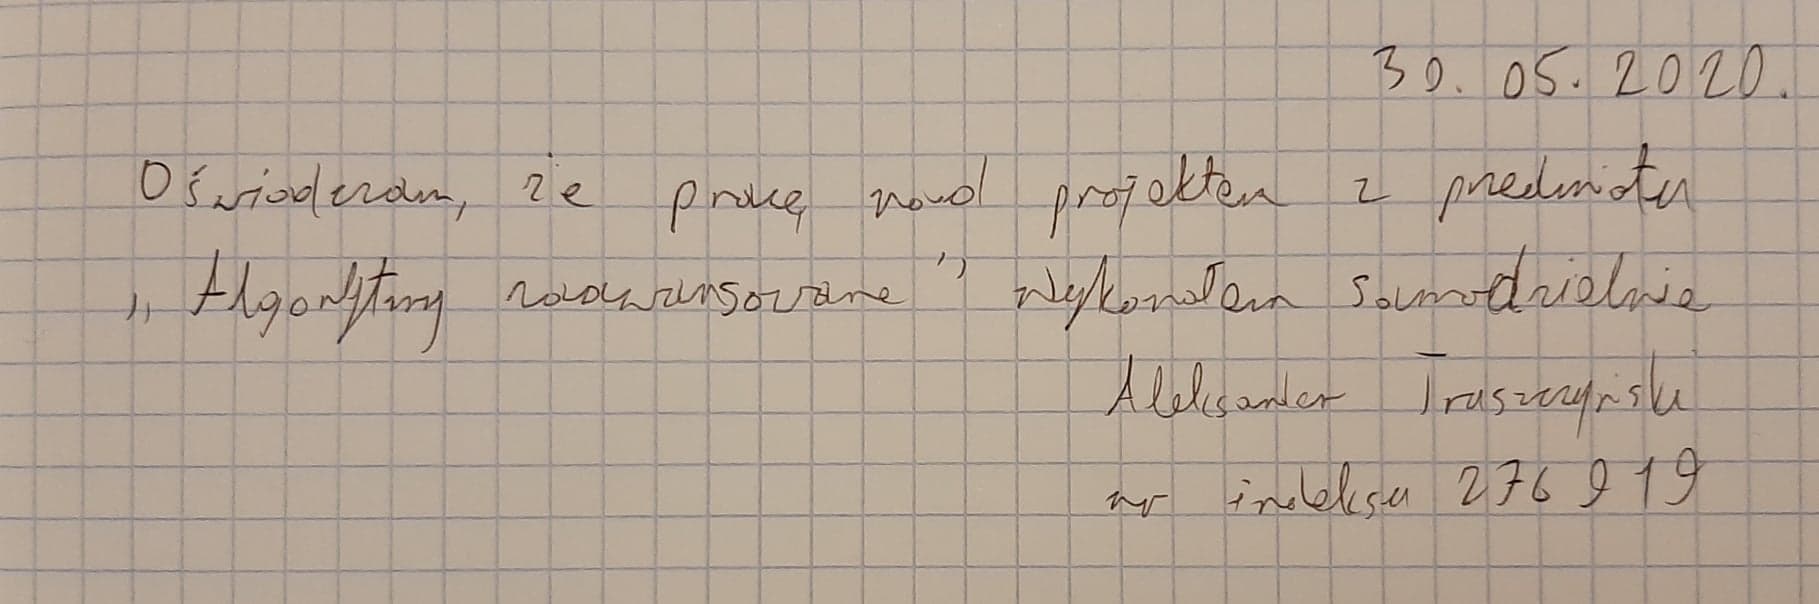 30.05.2020.
Oświadczam, że pracę nad projektem z przedmiotu
„Algorytmy zaawansowane” wykonałem samodzielnie
Aleksander Truszczyński
nr indeksu 276919